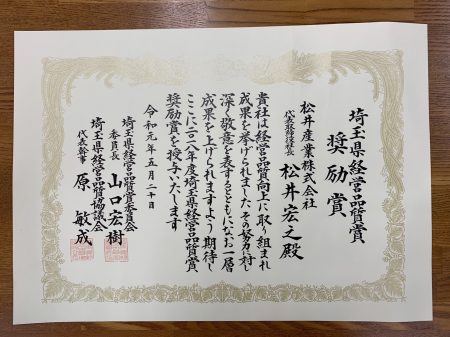 埼玉県経営品質賞
奨励賞
松井産業株式会社
代表取締役社長 松井宏之殿
貴社は経営品質向上に取り組まれ
成果を挙げられました その努力に対し
深く敬意を表するとともに なお一層
成果を上げられますよう期待し
ここに二〇一八年度埼玉県経営品質賞
奨励賞を授与いたします
令和元年五月二十日
埼玉県経営品質賞委員会
委員長 山口宏樹
埼玉県経営品質協議会
代表幹事 原敏成